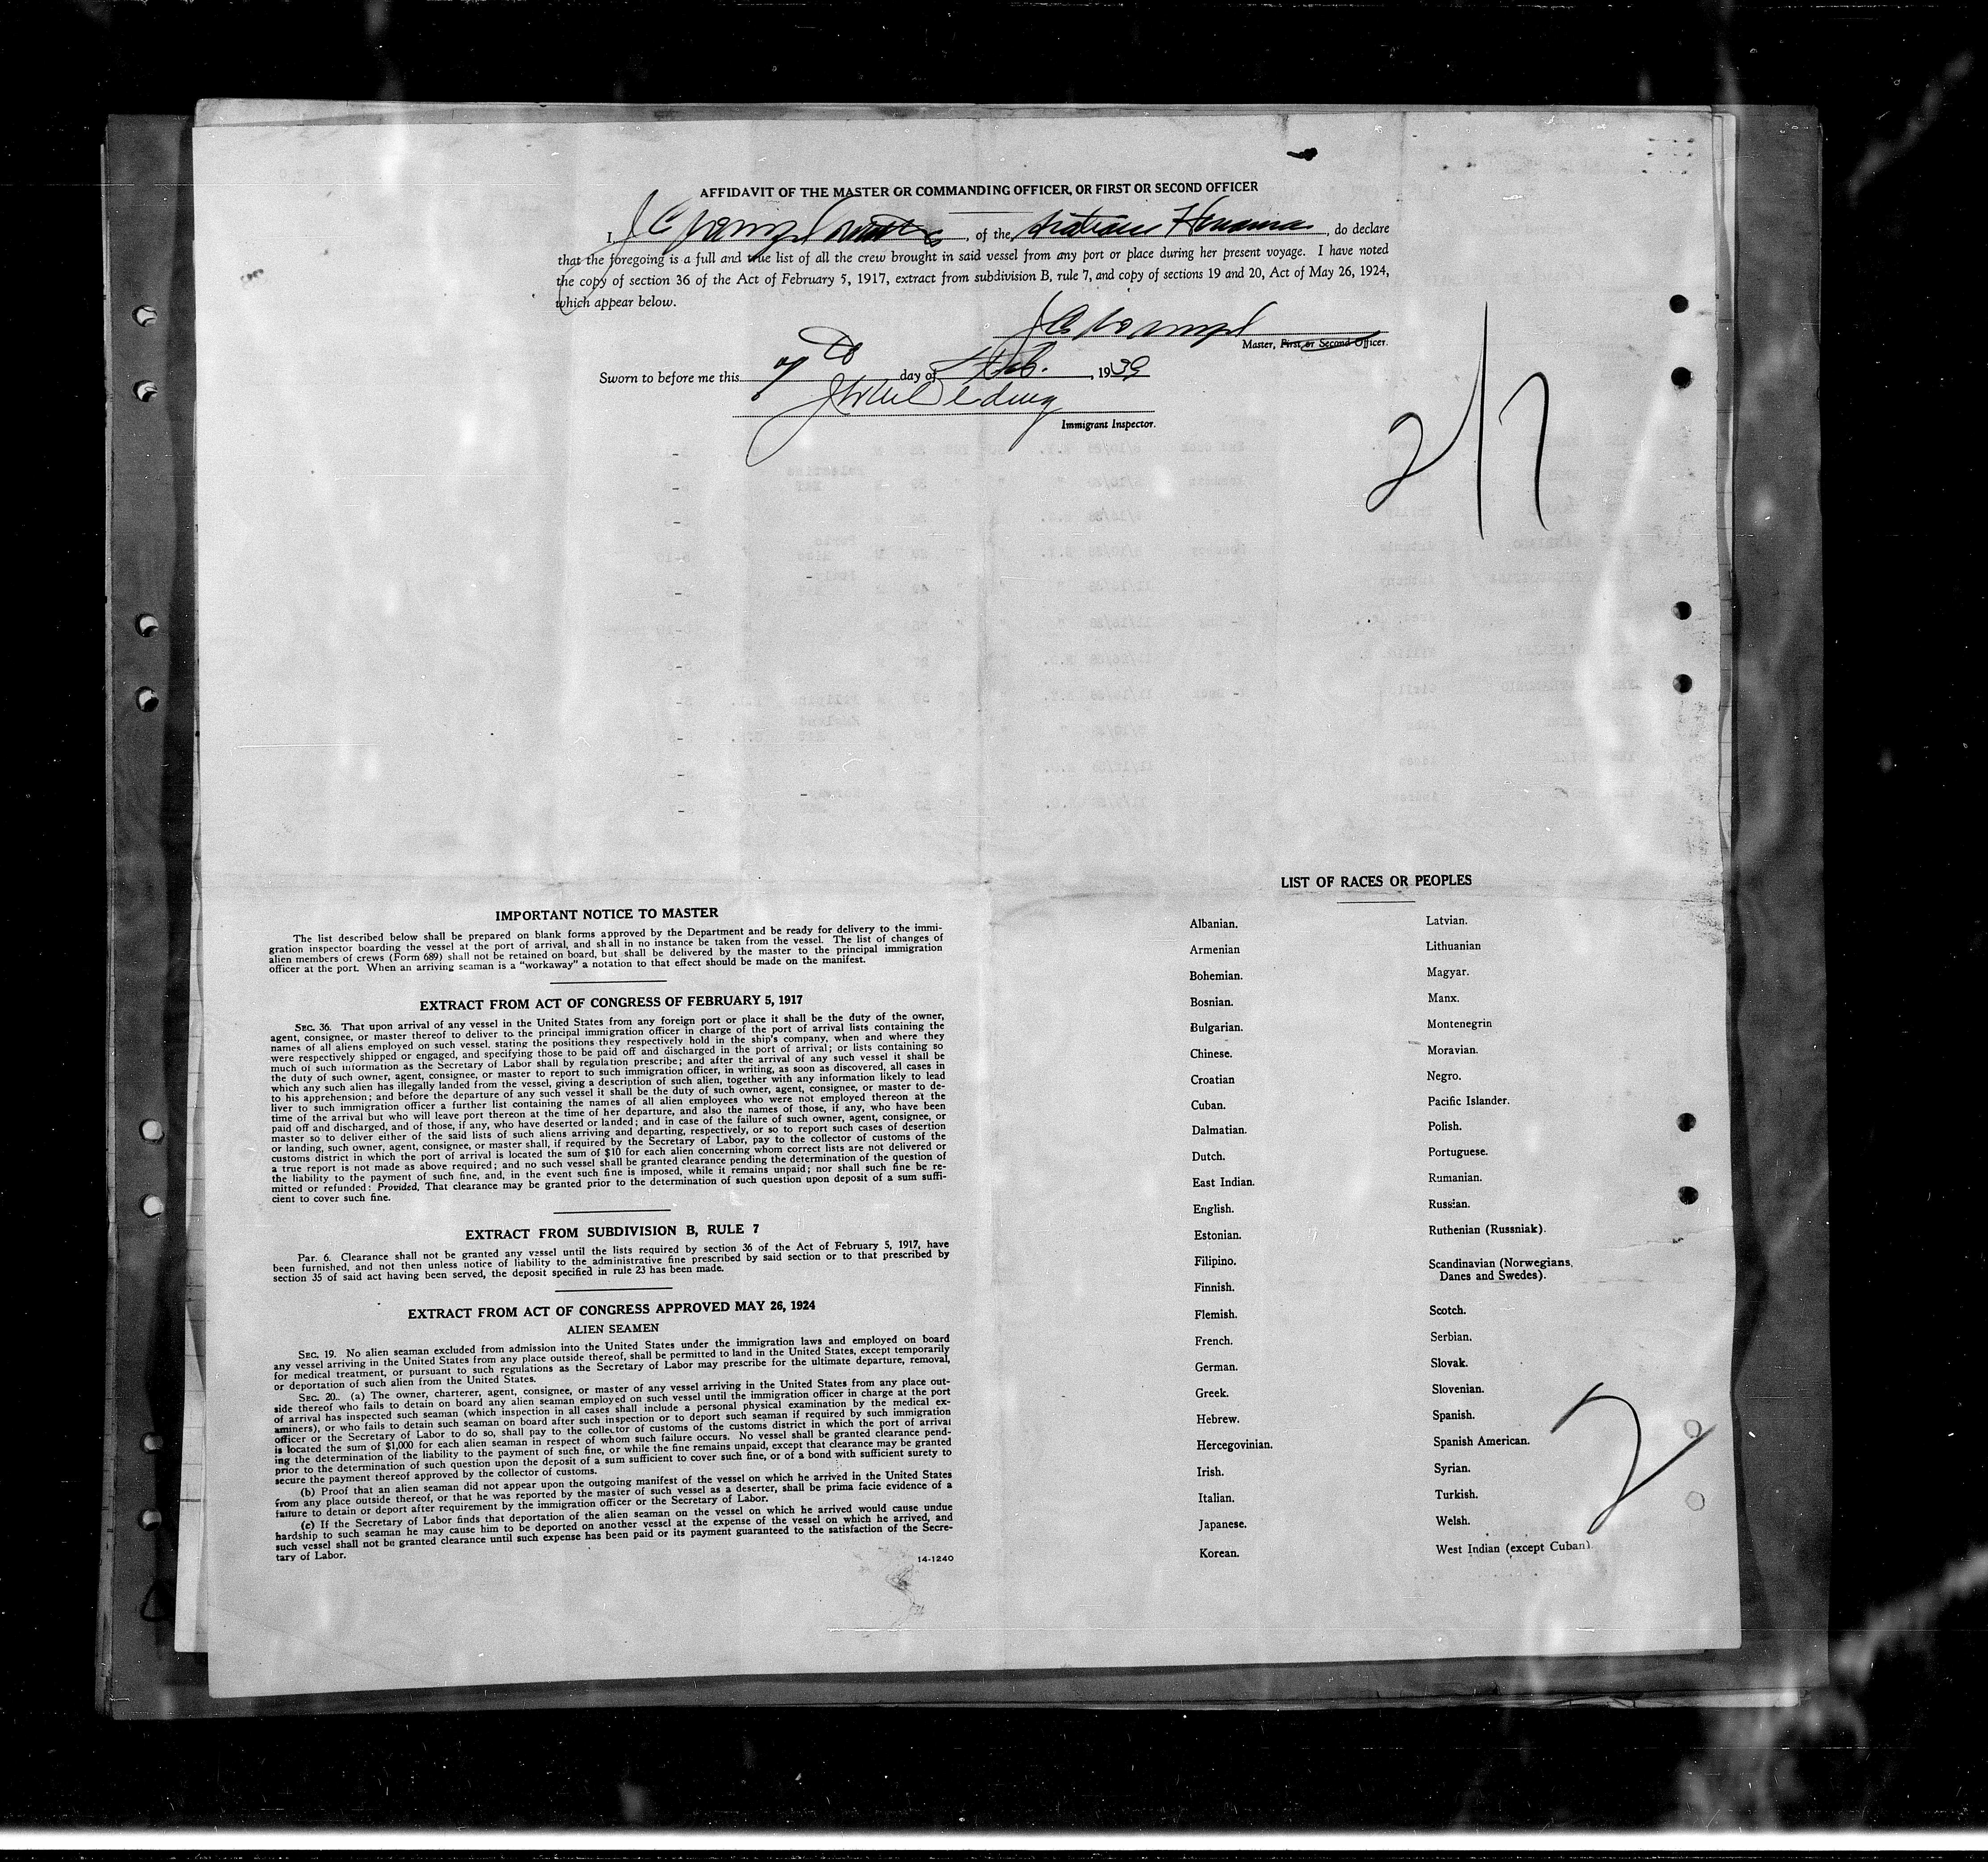 AFFIDAVIT OF THE MASTER OR COMMANDING OFFICER, OR FIRST OR SECOND OFFICER
I, , of the , do declare
that the foregoing is a full and true list of all the crew brought in said vessel from any port or place during her present voyage. I have noted
the copy of section 36 of the Act of February 5, 1917, extract from subdivision B, rule 7, and copy of sections 19 and 20, Act of May 26, 1924,
which appear below.
Master, First or Second Officer.
Sworn to before me this 7th day of Feb. , 1939
Immigrant Inspector.
2/7
IMPORTANT NOTICE TO MASTER
The list described below shall be prepared on blank forms approved by the Department and be ready for delivery to the immi-
gration inspector boarding the vessel at the port of arrival, and shall in no instance be taken from the vessel. The list of changes of
alien members of crews (Form 689) shall not be retained on board, but shall be delivered by the master to the principal immigration
officer at the port. When an arriving seaman is a "workaway" a notation to that effect should be made on the manifest.
EXTRACT FROM ACT OF CONGRESS OF FEBRUARY 5, 1917
SEC. 36. That upon arrival of any vessel in the United States from any foreign port or place it shall be the duty of the owner,
agent, consignee, or master thereof to deliver to the principal immigration officer in charge of the port of arrival lists containing the
names of all aliens employed on such vessel, stating the positions they respectively hold in the ship's company, when and where they
were respectively shipped or engaged, and specifying those to be paid off and discharged in the port of arrival; or lists containing so
much of such information as the Secretary of Labor shall by regulation prescribe; and after the arrival of any such vessel it shall be
the duty of such owner, agent, consignee, or master to report to such immigration officer, in writing, as soon as discovered, all cases in
which any such alien has illegally landed from the vessel, giving a description of such alien, together with any information likely to lead
to his apprehension; and before the departure of any such vessel it shall be the duty of such owner, agent, consignee, or master to de-
liver to such immigration officer a further list containing the names of all alien employees who were not employed thereon at the
time of the arrival but who will leave port thereon at the time of her departure, and also the names of those, if any, who have been
paid off and discharged, and of those, if any, who have deserted or landed; and in case of the failure of such owner, agent, consignee, or
master so to deliver either of the said lists of such aliens arriving and departing, respectively, or so to report such cases of desertion
or landing, such owner, agent, consignee, or master shall, if required by the Secretary of Labor, pay to the collector of customs of the
customs district in which the port of arrival is located the sum of $10 for each alien concerning whom correct lists are not delivered or
a true report is not made as above required; and no such vessel shall be granted clearance pending the determination of the question of
the liability to the payment of such fine, and, in the event such fine is imposed, while it remains unpaid; nor shall such fine be re-
mitted or refunded: Provided, That clearance may be granted prior to the determination of such question upon deposit of a sum suffi-
cient to cover such fine.
EXTRACT FROM SUBDIVISION B, RULE 7
Par. 6. Clearance shall not be granted any vessel until the lists required by section 36 of the Act of February 5, 1917, have
been furnished, and not then unless notice of liability to the administrative fine prescribed by said section or to that prescribed by
section 35 of said act having been served, the deposit specified in rule 23 has been made.
EXTRACT FROM ACT OF CONGRESS APPROVED MAY 26, 1924
ALIEN SEAMEN
SEC. 19. No alien seaman excluded from admission into the United States under the immigration laws and employed on board
any vessel arriving in the United States from any place outside thereof, shall be permitted to land in the United States, except temporarily
for medical treatment, or pursuant to such regulations as the Secretary of Labor may prescribe for the ultimate departure, removal,
or deportation of such alien from the United States.
SEC. 20. (a) The owner, charterer, agent, consignee, or master of any vessel arriving in the United States from any place out-
side thereof who fails to detain on board any alien seaman employed on such vessel until the immigration officer in charge at the port
of arrival has inspected such seaman (which inspection in all cases shall include a personal physical examination by the medical ex-
aminers), or who fails to detain such seaman on board after such inspection or to deport such seaman if required by such immigration
officer or the Secretary of Labor to do so, shall pay to the collector of customs of the customs district in which the port of arrival
is located the sum of $1,000 for each alien seaman in respect of whom such failure occurs. No vessel shall be granted clearance pend-
ing the determination of the liability to the payment of such fine, or while the fine remains unpaid, except that clearance may be granted
prior to the determination of such question upon the deposit of a sum sufficient to cover such fine, or of a bond with sufficient surety to
secure the payment thereof approved by the collector of customs.
(b) Proof that an alien seaman did not appear upon the outgoing manifest of the vessel on which he arrived in the United States
from any place outside thereof, or that he was reported by the master of such vessel as a deserter, shall be prima facie evidence of a
failure to detain or deport after requirement by the immigration officer or the Secretary of Labor.
(c) If the Secretary of Labor finds that deportation of the alien seaman on the vessel on which he arrived would cause undue
hardship to such seaman he may cause him to be deported on another vessel at the expense of the vessel on which he arrived, and
such vessel shall not be granted clearance until such expense has been paid or its payment guaranteed to the satisfaction of the Secre-
tary of Labor.
14-1240
LIST OF RACES OR PEOPLES
Albanian.
Armenian
Bohemian.
Bosnian.
Bulgarian.
Chinese.
Croatian
Cuban.
Dalmatian.
Dutch.
East Indian.
English.
Estonian.
Filipino.
Finnish.
Flemish.
French.
German.
Greek.
Hebrew.
Hercegovinian.
Irish.
Italian.
Japanese.
Korean.
Latvian.
Lithuanian
Magyar.
Manx.
Montenegrin
Moravian.
Negro.
Pacific Islander.
Polish.
Portuguese.
Rumanian.
Russian.
Ruthenian (Russniak).
Scandinavian (Norwegians,
Danes and Swedes).
Scotch.
Serbian.
Slovak.
Slovenian.
Spanish.
Spanish American.
Syrian.
Turkish.
Welsh.
West Indian (except Cuban)
2